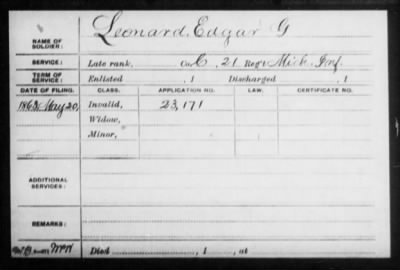 NAME OF SOLDIER: Leonard, Edgar G
SERVICE: Late rank, Co. C, 21 Reg't Mich. Inf.
TERM OF SERVICE: Enlisted , 1 Discharged , 1
DATE OF FILING. CLASS. APPLICATION NO. LAW. CERTIFICATE NO.
1863, May 20, Invalid, 23,171
Widow,
Minor,
ADDITIONAL SERVICES:
REMARKS:
Died , 1 , at